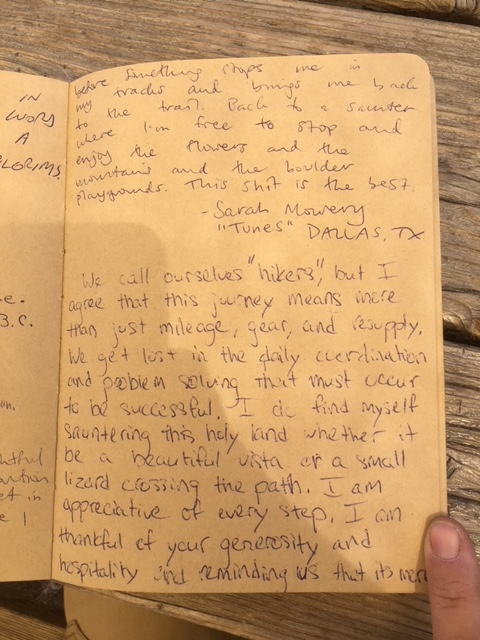 IN
WORDS
A
PILGRIMS
e.
B.C.
before something stops me in
my tracks and brings me back
to the trail. Back to a saunter
where I'm free to stop and
enjoy the flowers and the
mountains and the boulder
playgrounds. This shit is the best.
- Sarah Mowery
"Tunes" DALLAS, TX
We call ourselves "hikers", but I
agree that this journey means more
than just mileage, gear, and resupply.
We get lost in the daily coordination
and problem solving that must occur
to be successful. I do find myself
sauntering this holy land whether it
be a beautiful vista or a small
lizard crossing the path. I am
appreciative of every step. I am
thankful of your generosity and
hospitality and reminding us that its more